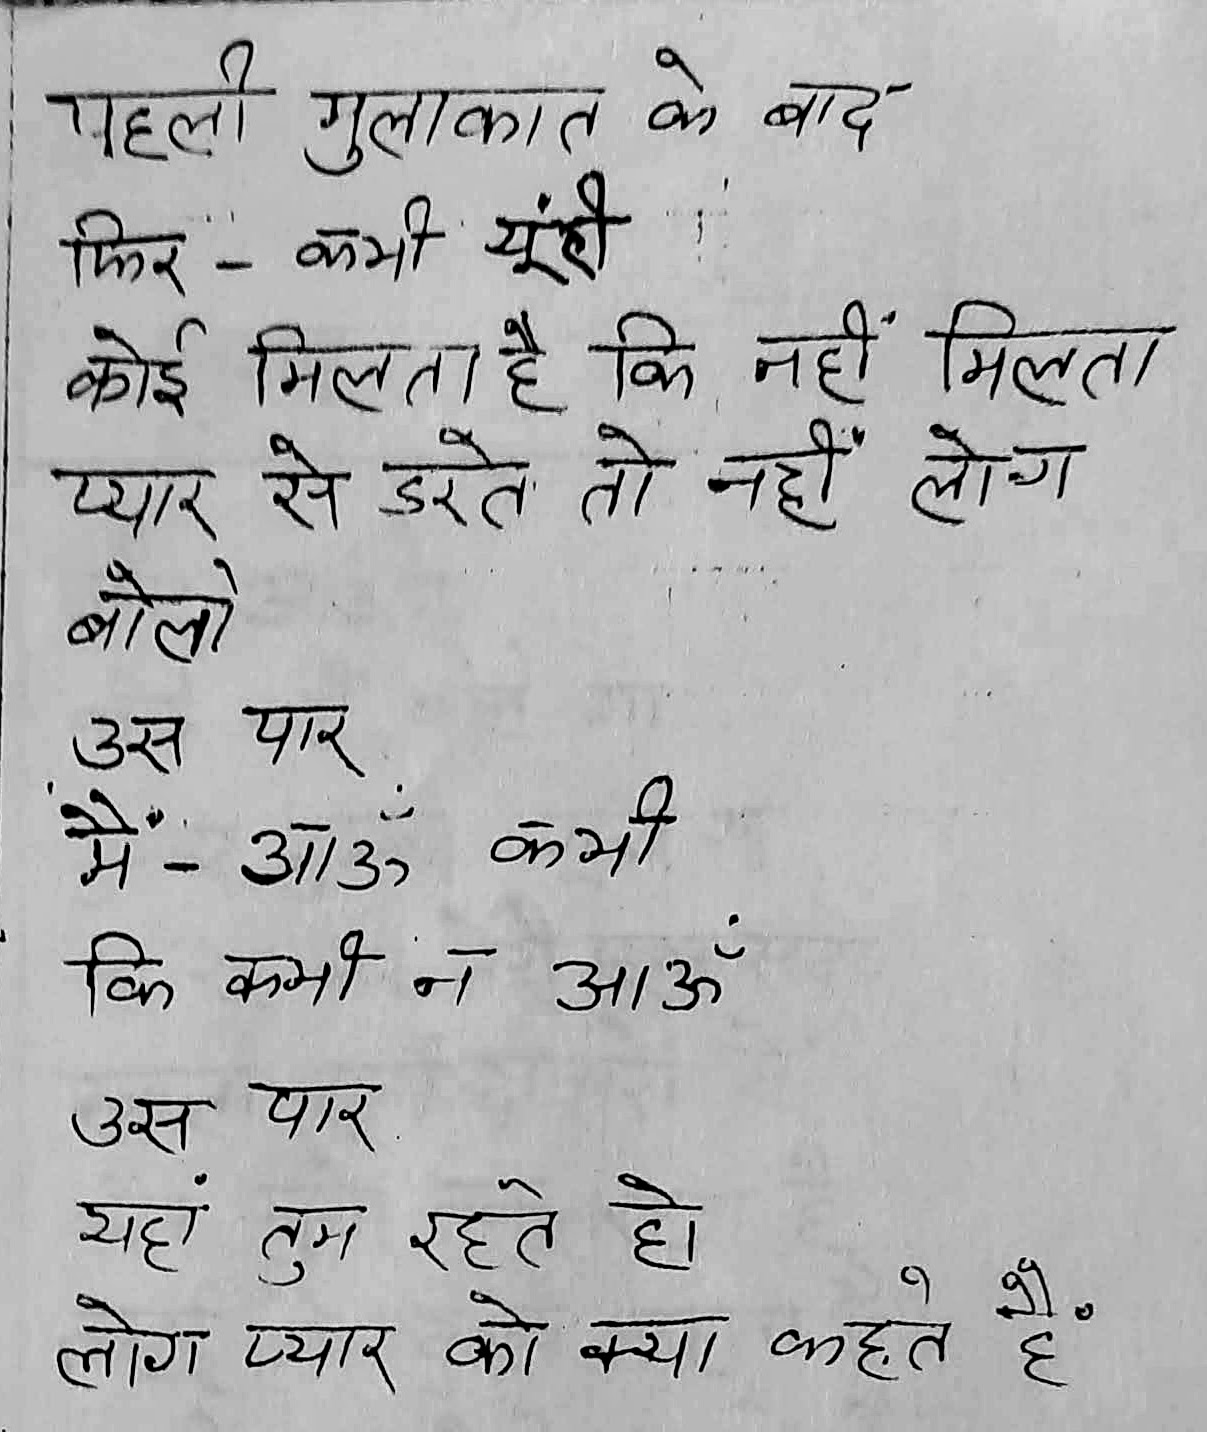 पहली मुलाकात के बाद
फिर - कभी यूंही
कोई मिलता है कि नहीं मिलता
प्यार से डरते तो नहीं लोग
बोलो
उस पार
मैं - आऊँ कभी
कि कभी न आऊँ
उस पार
यहां तुम रहते हो
लोग प्यार को क्या कहते हैं